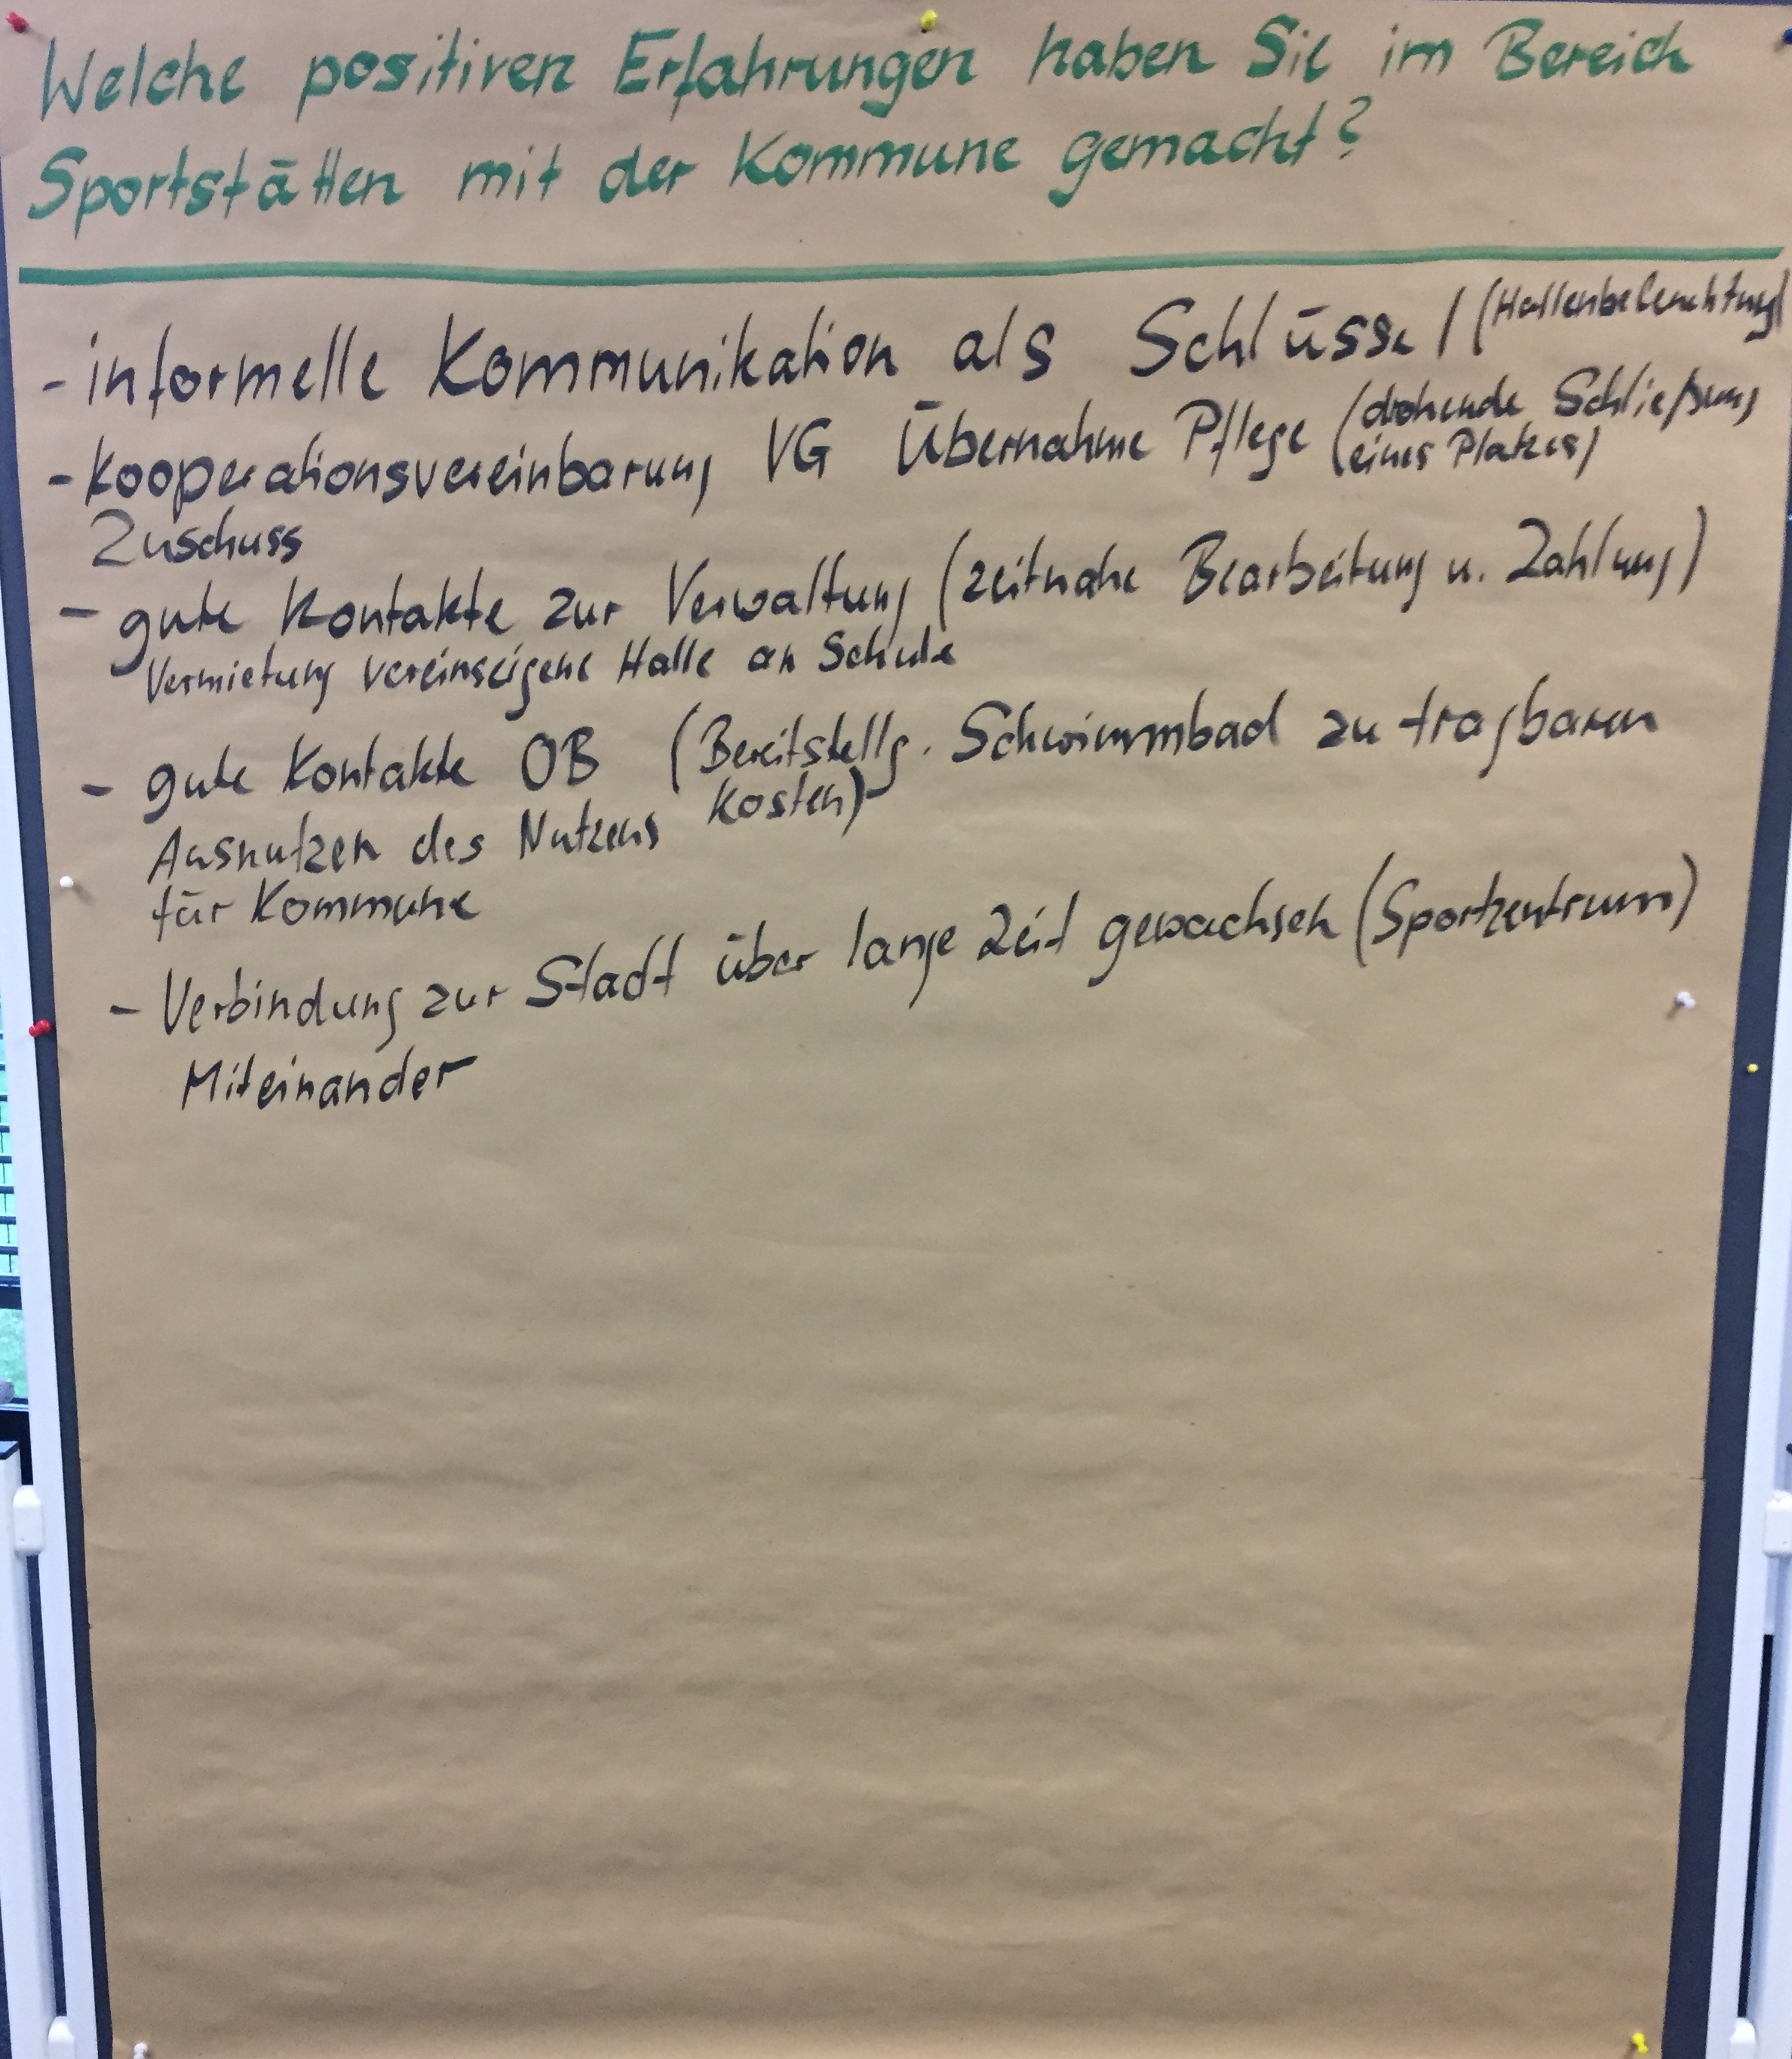 Welche positiven Erfahrungen haben Sie im Bereich
Sportstätten mit der Kommune gemacht?
- informelle Kommunikation als Schlüssel (Hallenbeleuchtung)
- Kooperationsvereinbarung VG Übernahme Pflege (drohende Schließung
eines Platzes)
Zuschuss
- gute Kontakte zur Verwaltung (zeitnahe Bearbeitung u. Zahlung)
Vermietung vereinseigene Halle an Schule
- gute Kontakte OB (Bereitstellg. Schwimmbad zu tragbaren
Kosten)
Ausnutzen des Nutzens
für Kommune
- Verbindung zur Stadt über lange Zeit gewachsen (Sportzentrum)
Miteinander